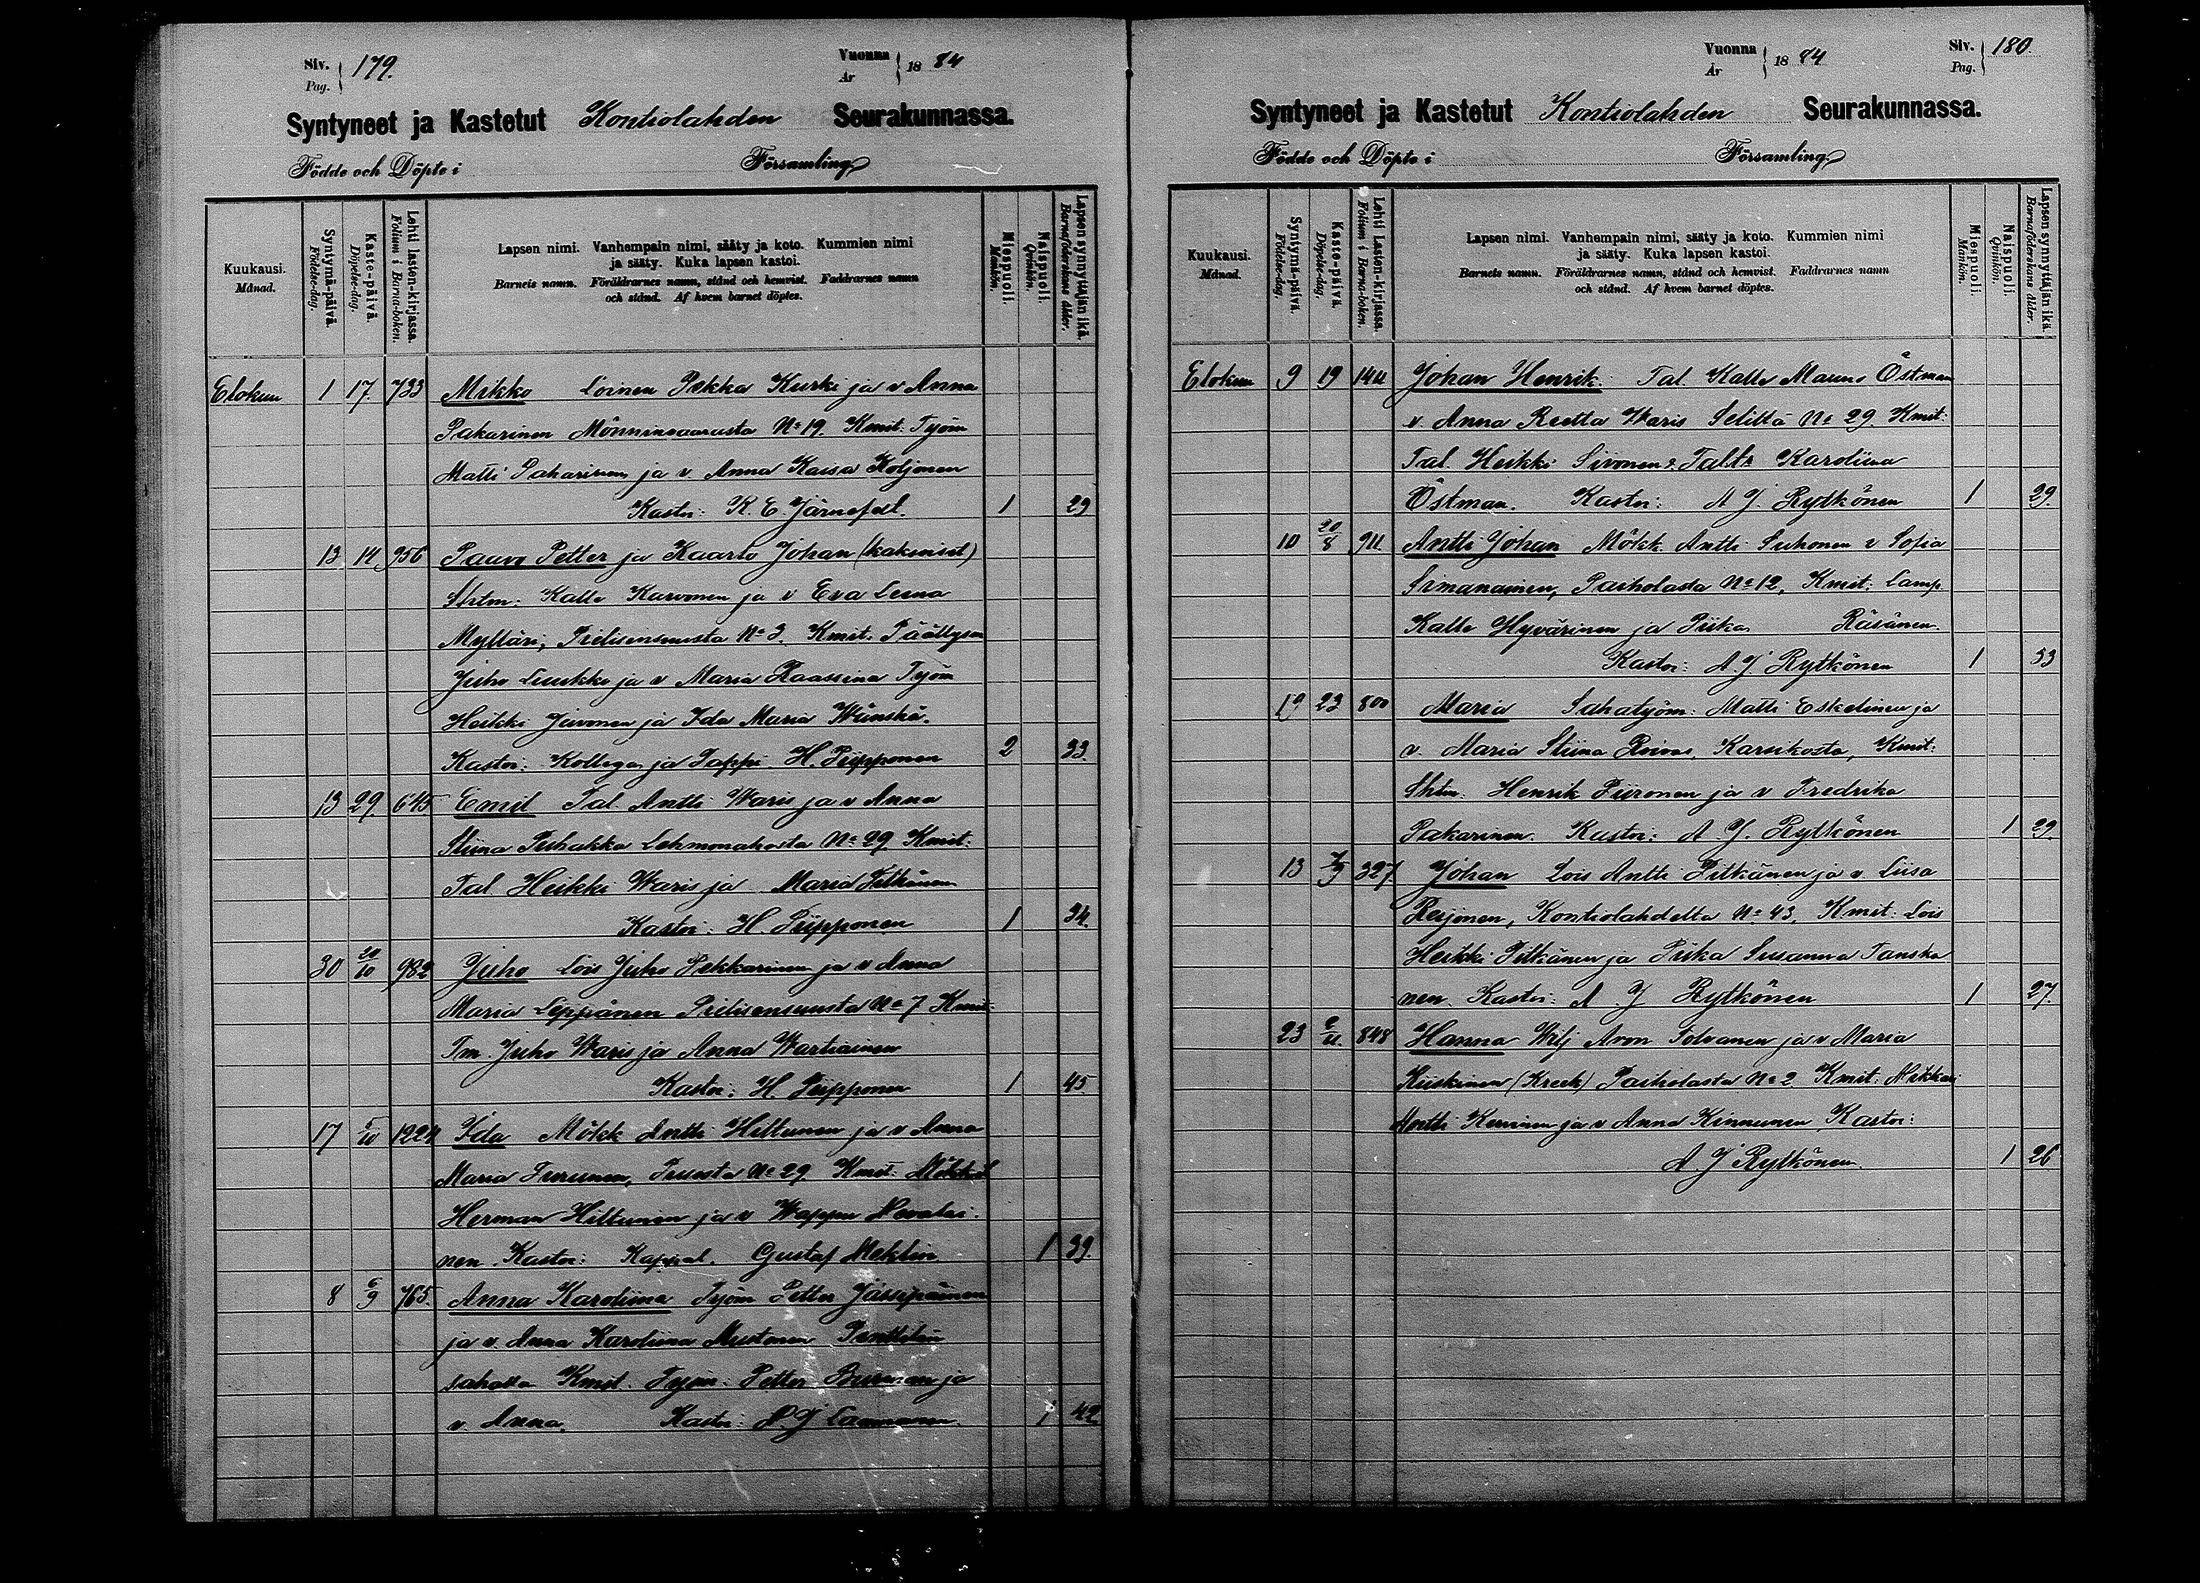 Siv. 179.
Pag.
Vuonna 1884
År
Syntyneet ja Kastetut Kontiolahden Seurakunnassa.
Födde och Döpte i Församling
Kuukausi.
Månad.
Syntymä-päivä.
Födelse-dag.
Kaste-päivä.
Döpelse-dag.
Lehti lasten-kirjassa.
Folium i Barna-boken.
Lapsen nimi. Vanhempain nimi, sääty ja koto. Kummien nimi
ja sääty. Kuka lapsen kastoi.
Barnets namn. Föräldrarnes namn, stånd och hemvist. Faddrarnes namn
och stånd. Af hvem barnet döptes.
Miespuoli.
Mankön.
Naispuoli.
Qvinkön.
Lapsen synnyttäjän ikä.
Barnaföderskans ålder.
Elokuu 1 17. 733 Mikko Loinen Pekka Kurki ja v Anna
Pakarinen Mönninvaarasta No 19. Kmit. Työm
Matti Pakarinen ja v. Anna Kaisa Koljonen
Kastoi: K. E. Järnefelt. 1 29
13 14 956 Paavo Petter ja Kaarlo Johan (kaksoiset)
Kalle Karvonen ja v Eva Leena
Mylläri, Pielisensuusta No 3. Kmit. Päällysm
Juho ja v Maria Raassina Työm
Heikki Juvonen ja Ida Maria
Kastoi: Kollega ja Pappi H. Piipponen 2 33.
13 29. 645 Emil Tal. Antti Waris ja v Anna
Stiina Puhakka Lehmonahosta No 29 Kmit:
Tal Heikki Waris ja Maria Pitkänen
Kastoi: H. Piipponen 1 34.
30 29/10 982 Juho Lois Juho Pekkarinen ja v Anna
Maria Leppänen Pielisensuusta No 7 Kmit:
Tm. Juho Waris ja Anna Wartiainen
Kastoi: H. Piipponen 1 45.
17 5/10 1224 Ida Mökk Antti Hiltunen ja v Anna
Maria Turunen, No 29. Kmit: Mökk
Herman Hiltunen ja v Wappu Nevalai-
nen. Kastoi: Kappal. Gustaf 1 39.
8 6/9 765. Anna Karoliina Työm Petter
ja v. Anna Karoliina Mustonen Penttilän
sahalla Kmit. Työm. Petter ja
v. Anna. Kastoi: 1 42
Vuonna 1884
År
Siv. 180.
Pag.
Syntyneet ja Kastetut Kontiolahden Seurakunnassa.
Födde och Döpte i Församling
Kuukausi.
Månad.
Syntymä-päivä.
Födelse-dag.
Kaste-päivä.
Döpelse-dag.
Lehti Lasten-kirjassa.
Folium i Barna-boken.
Lapsen nimi. Vanhempain nimi, sääty ja koto. Kummien nimi
ja sääty. Kuka lapsen kastoi.
Barnets namn. Föräldrarnes namn, stånd och hemvist. Faddrarnes namn
och stånd. Af hvem barnet döptes.
Miespuoli.
Mankön.
Naispuoli.
Qvinkön.
Lapsen synnyttäjän ikä.
Barnaföderskans ålder.
Elokuu 9 19 Johan Henrik. Tal. Kalle Mauno Östman
v. Anna Reetta Waris Seliltä No 29. Kmit:
Tal. Heikki Sivonen Karoliina
Östman. Kastoi: A J. Rytkönen 1 29.
10 20/8 Antti Johan Mökk. Antti Suhonen v Sofia
Simanainen, Paiholasta No 12, Kmit: Lamp
Kalle Hyvärinen ja Piika Räsänen.
Kastoi: A. J Rytkönen 1 33
19 23 800 Maria Sahatyöm: Matti Eskelinen ja
v. Maria Stiina Roivas, Karsikosta, Kmit:
Henrik Piironen ja v Fredrika
Pakarinen. Kastoi: A. J. Rytkönen 1 29.
13 7/9 327 Johan Lois Antti Pitkänen ja v. Liisa
Reijonen, Kontiolahdelta No 43, Kmit: Lois
Heikki Pitkänen ja Piika Susanna Tanska
nen. Kastoi: A. J Rytkönen 1 27.
23 848 Hanna Wilj Aron Tolvanen ja v Maria
Kiiskinen (Kreek) Paiholasta No 2 Kmit:
Antti ja v Anna Kinnunen Kastoi:
A. J Rytkönen. 1 26